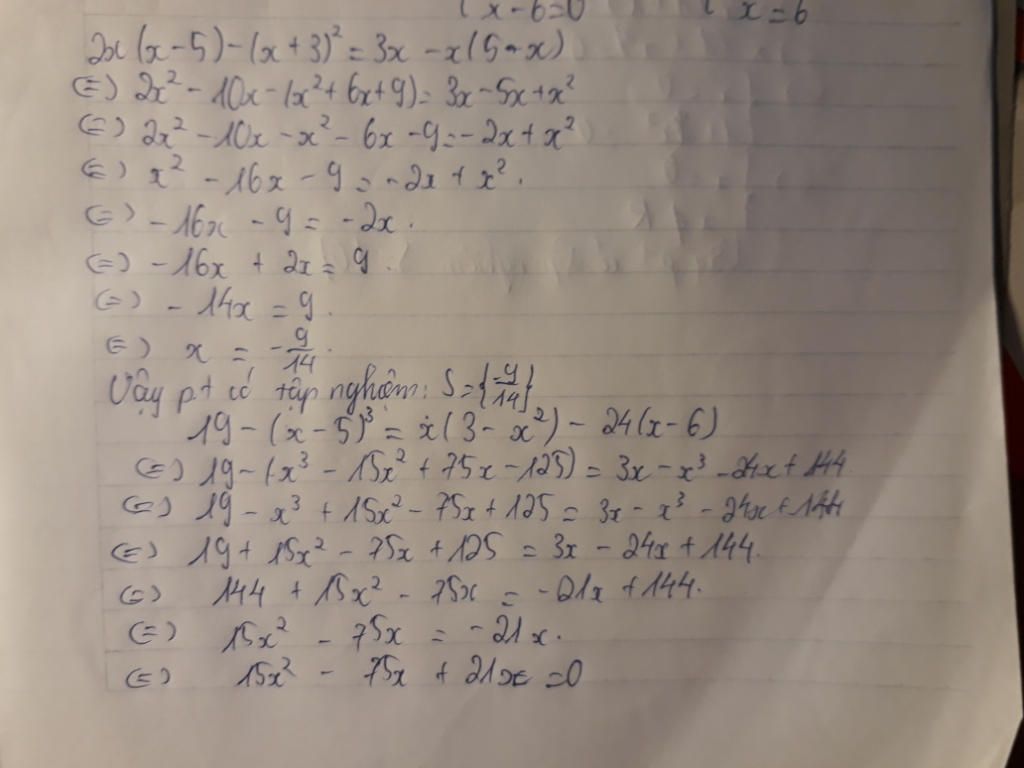 x - 6 = 0 x = 6
2x(x - 5) - (x + 3)² = 3x - x(5 - x)
(=) 2x² - 10x - (x² + 6x + 9) = 3x - 5x + x²
(=) 2x² - 10x - x² - 6x - 9 = - 2x + x²
(=) x² - 16x - 9 = - 2x + x².
(=) - 16x - 9 = - 2x.
(=) - 16x + 2x = 9.
(=) - 14x = 9.
(=) x = - 9/14.
Vậy pt có tập nghiệm: S = {9/14}
19 - (x - 5)³ = x(3 - x²) - 24(x - 6)
(=) 19 - (x³ - 15x² + 75x - 125) = 3x - x³ - 24x + 144
(=) 19 - x³ + 15x² - 75x + 125 = 3x - x³ - 24x + 144
(=) 19 + 15x² - 75x + 125 = 3x - 24x + 144.
(=) 144 + 15x² - 75x = - 21x + 144.
(=) 15x² - 75x = - 21x.
(=) 15x² - 75x + 21x = 0